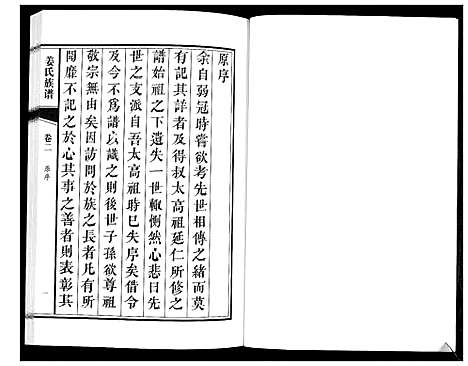 原序
余自弱冠時嘗欲考先世相傳之緒而莫
有記其詳者及得叔太高祖延仁所修之
譜始祖之下遺失一世輒惻然心悲曰先
世之支派自吾太高祖時已失序矣借令
及今不爲譜以識之則後世子孫欲尊祖
敬宗無由矣因訪問於族之長者凡有所
聞靡不記之於心其事之善者則表彰其
姜氏族谱
卷二
原序
一